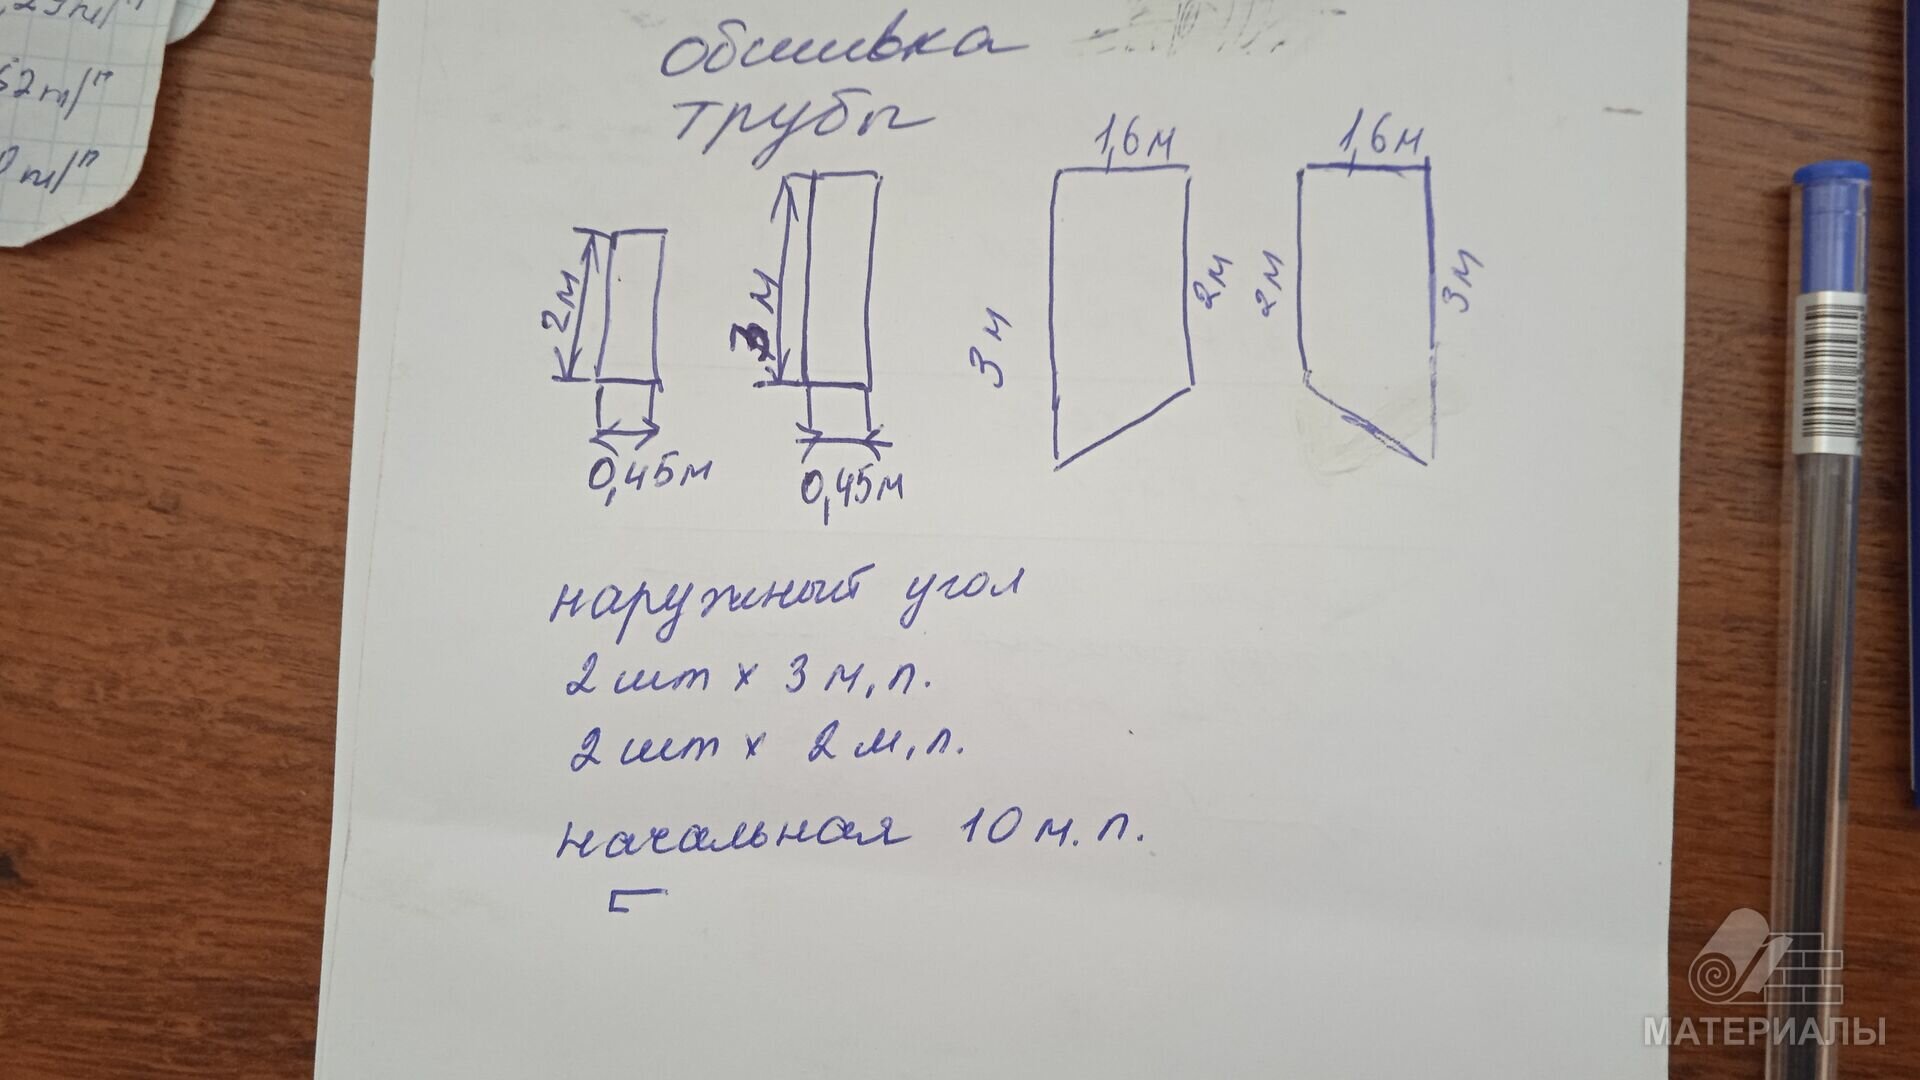 обшивка
трубы
1,6м 1,6м
2м 3м 3м 2м 2м 3м
0,45м 0,45м
наружный угол
2 шт х 3 м,п.
2 шт х 2 м,п.
начальная 10 м.п.
МАТЕРИАЛЫ